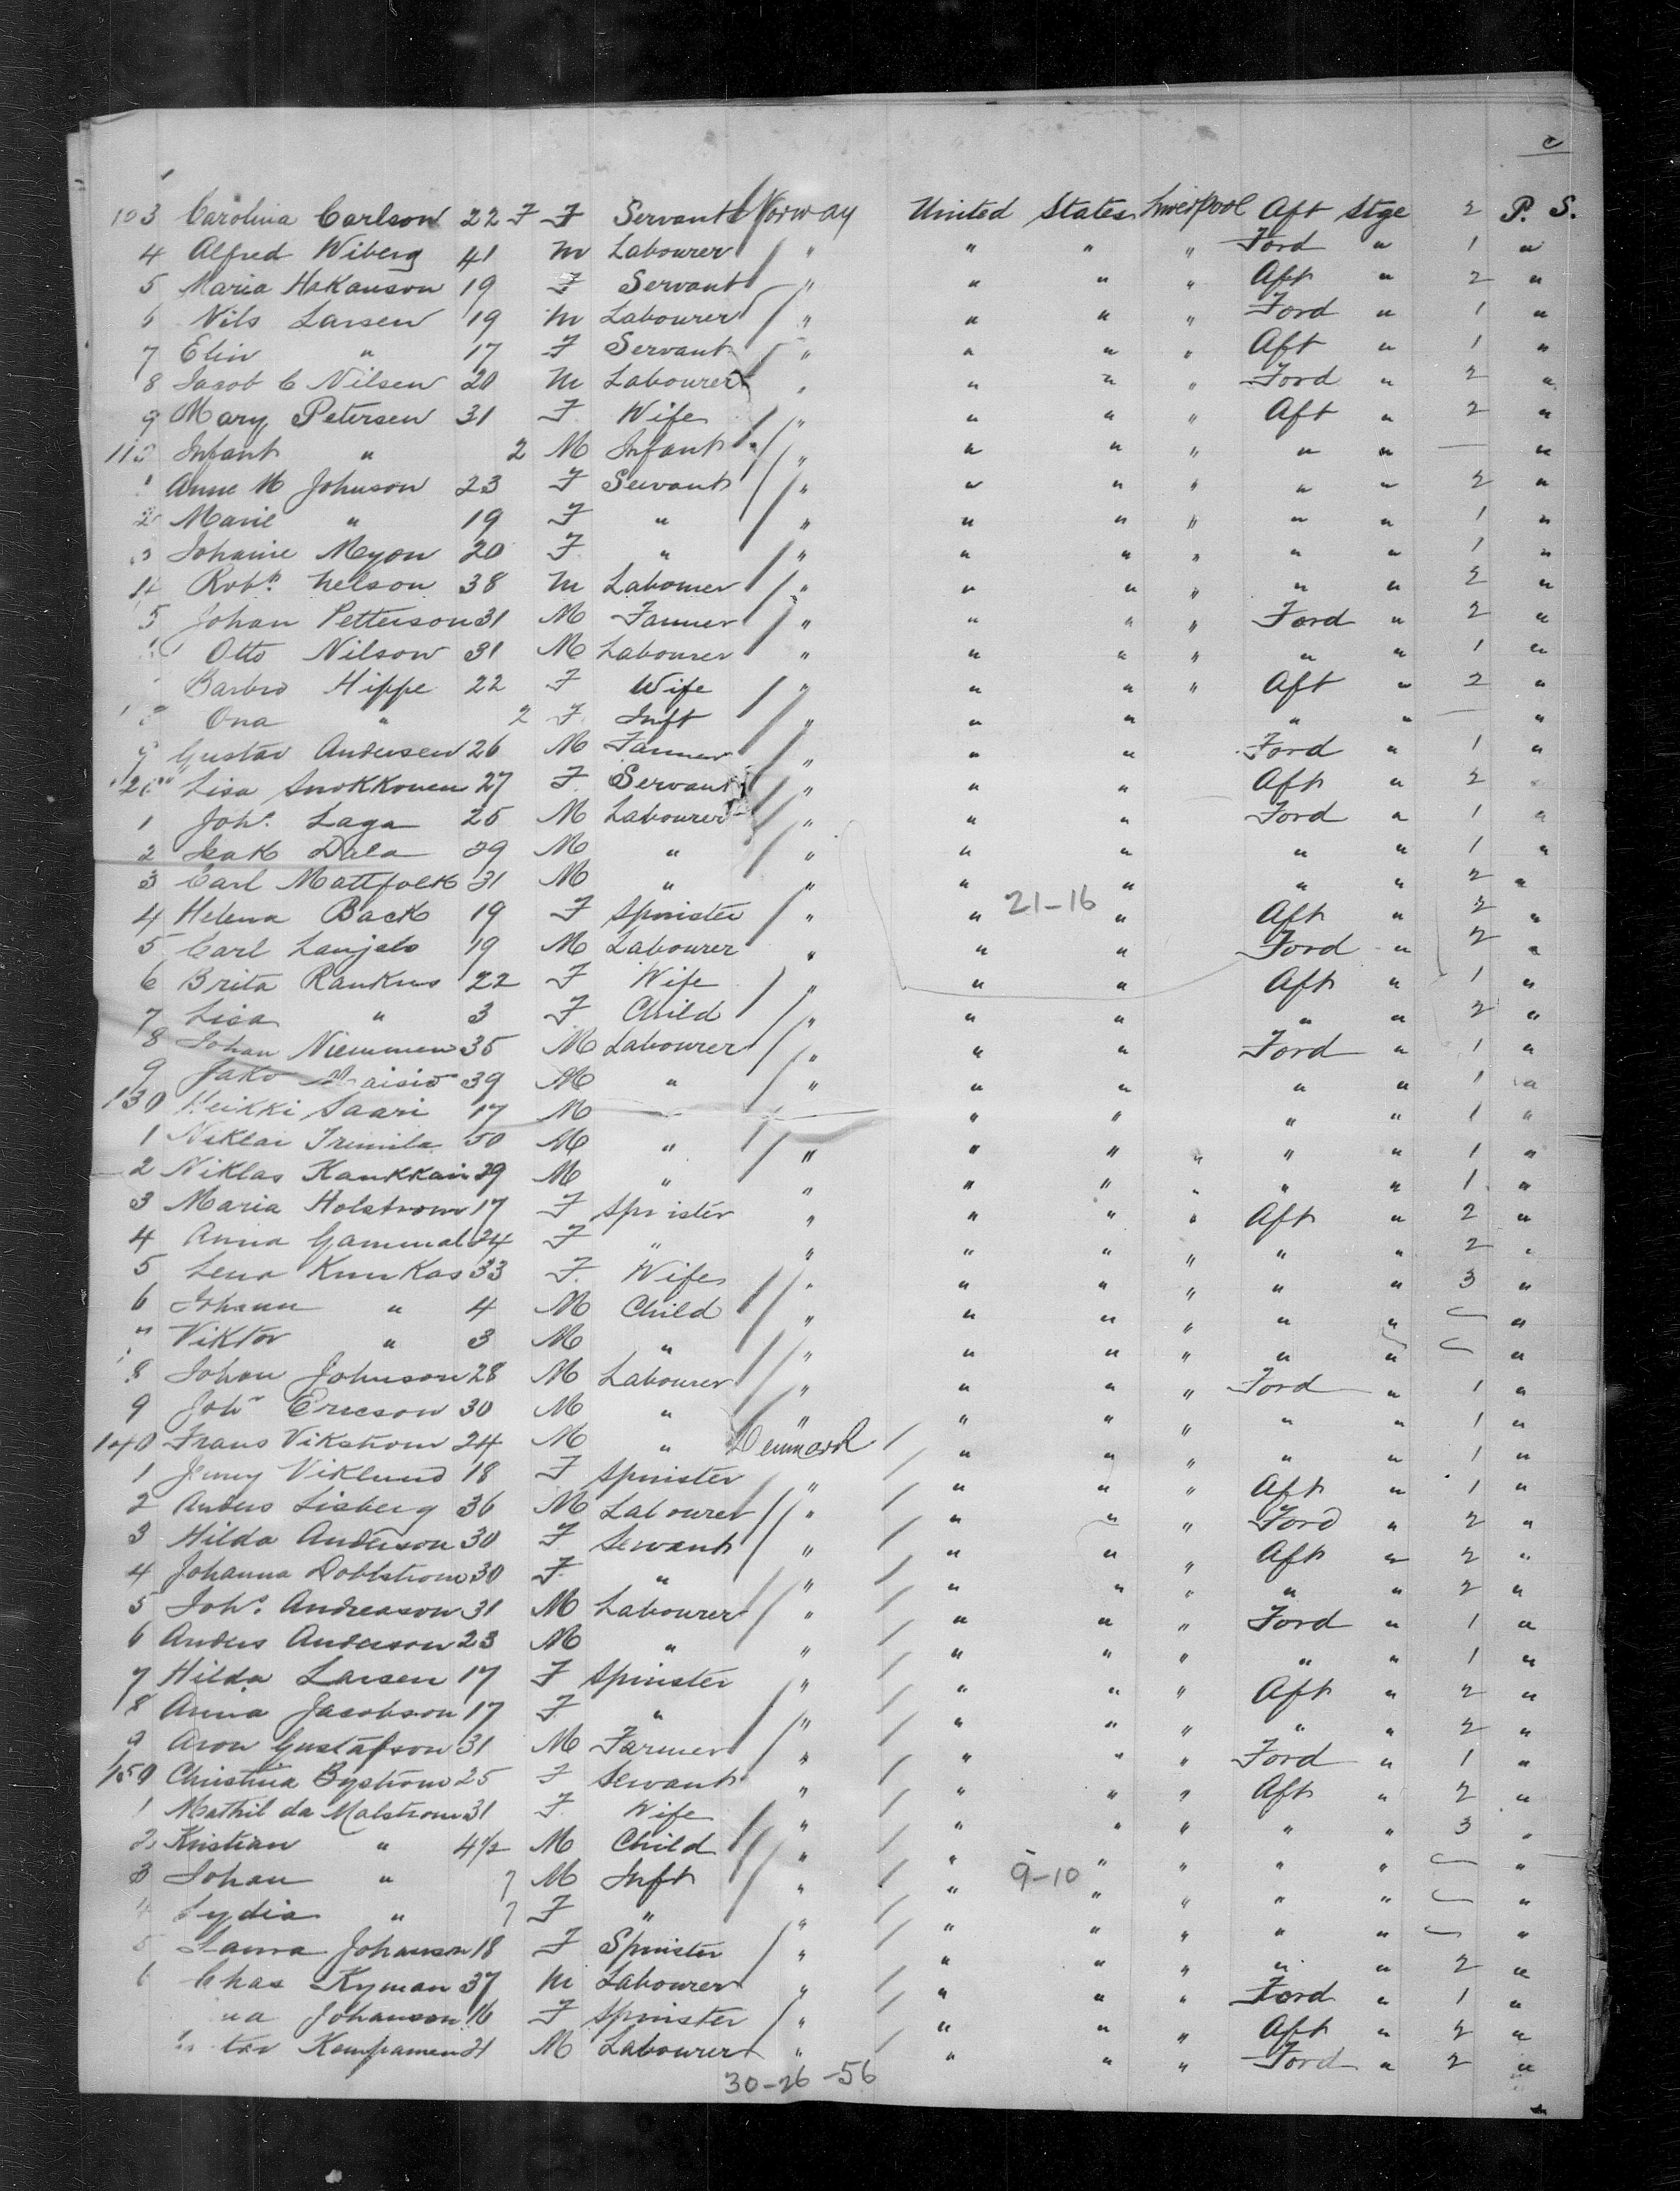 c
103 Carolina Carlson 22 F F Servant Norway United States Liverpool Aft Stge 2 P. S.
4 Alfred Wiberg 41 M Labourer " " " " Ford " 1 "
5 Maria Hakanson 19 F Servant " " " " Aft " 2 "
6 Nils Larsen 19 M Labourer " " " " Ford " 1 "
7 Elin " 17 F Servant " " " " Aft " 1 "
8 Jacob C Nilsen 20 M Labourer " " " " Ford " 2 "
9 Mary Petersen 31 F Wife " " " " Aft " 2 "
110 Infant " 2 M Infant " " " " " " — "
1 Anne M Johnson 23 F Servant " " " " " " 2 "
2 Marie " 19 F " " " " " " " 1 "
3 Johanne Myon 20 F " " " " " " " 1 "
4 Robt. Nelson 38 M Labourer " " " " " " 2 "
5 Johan Petterson 31 M Farmer " " " " Ford " 2 "
Otto Nilson 31 M Labourer " " " " " " 1 "
Barbro Hippe 22 F Wife " " " " Aft " 2 "
Ona " 2 F Inft " " " " " — "
9 Gustav Andersen 26 M Farmer " " " Ford " 1 "
120 Lisa Snokkonen 27 F Servant " " " Aft " 2 "
1 Johs. Laga 25 M Labourer " " " Ford " 1 "
2 Isak Dala 29 M " " " " " " 1 "
3 Carl Mattfolk 31 M " " " " " " 2 "
4 Helena Back 19 F Spinster " " 21-16 " Aft " 2 "
5 Carl 19 M Labourer " " " Ford " 2 "
6 Brita Rankus 22 F Wife " " " Aft " 1 "
7 Lisa " 3 F Child " " " " " 2 "
8 Johan Niemmen 35 M Labourer " " " Ford " 1 "
9 Jako Maisio 39 M " " " " " " 1 "
130 Heikki Saari 17 M " " " " " " 1 "
1 Niklai 50 M " " " " " " 1 "
2 Niklas Kankkain 29 M " " " " " " " 1 "
3 Maria Holstrom 17 F Spinster " " " " Aft " 2 "
4 Anna Gammal 24 F " " " " " " " 2 "
5 Lena Kunkas 33 F Wife " " " " " " 3 "
6 Johann " 4 M Child " " " " " " — "
7 Viktor " 3 M " " " " " " " — "
8 Johan Johnson 28 M Labourer " " " " Ford " 1 "
9 Johr Ericson 30 M " " " " " " " 1 "
140 Frans Vikstrom 24 M " Denmark " " " " " 1 "
1 Jenny Viklund 18 F Spinster " " " " Aft " 1 "
2 Anders Lisberg 36 M Labourer " " " " Ford " 2 "
3 Hilda Anderson 30 F Servant " " " " Aft " 2 "
4 Johanna Doblstrom 30 F " " " " " " " 2 "
5 Johs. Andreason 31 M Labourer " " " " Ford " 1 "
6 Anders Anderson 23 M " " " " " " " 1 "
7 Hilda Larsen 17 F Spinster " " " " Aft " 2 "
8 Anna Jacobson 17 F " " " " " " " 2 "
9 Aron Gustafson 31 M Farmer " " " " Ford " 1 "
150 Christina Bystrom 25 F Servant " " " " Aft " 2 "
1 Mathilda Malstrom 31 F Wife " " " " " " 3 "
2 Kristian " 4½ M Child " " " " " " — "
3 Johan " 7 M Inft " " 9-10 " " " " — "
4 Lydia " 7 F " " " " " " " — "
5 Laura Johanson 18 F Spinster " " " " " " 2 "
6 Chas Kyman 37 M Labourer " " " " Ford " 1 "
na Johanson 16 F Spinster " " " " Aft " 2 "
tav Kampamen 21 M Labourer " " " " Ford " 2 "
30-26-56